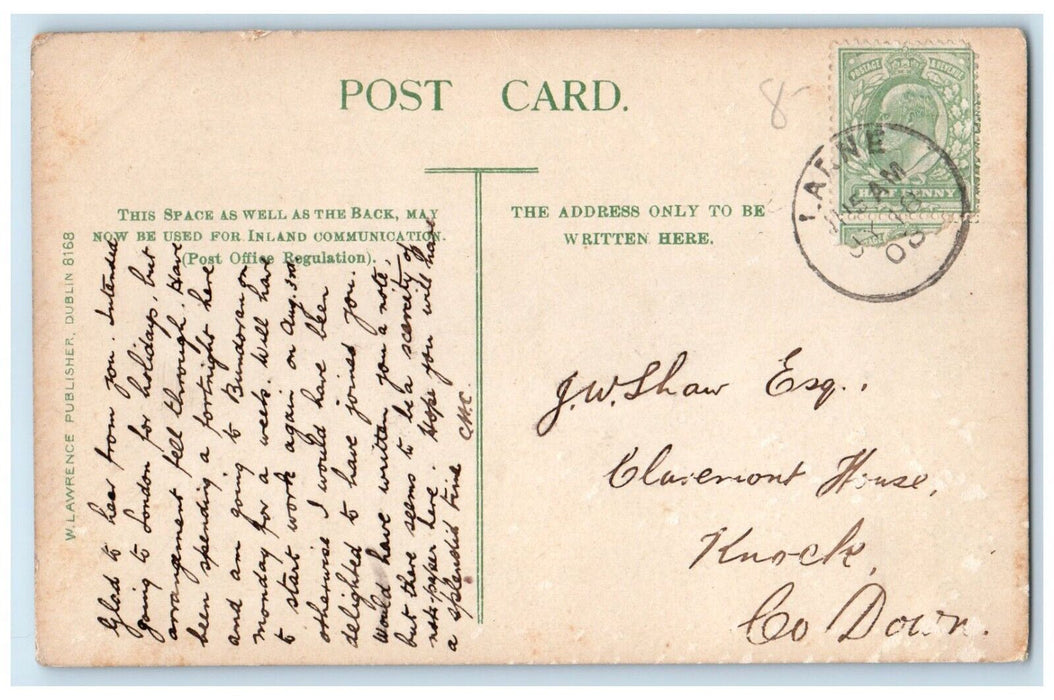 POST CARD.
THIS SPACE AS WELL AS THE BACK, MAY
NOW BE USED FOR INLAND COMMUNICATION.
(Post Office Regulation).
THE ADDRESS ONLY TO BE
WRITTEN HERE.
W. LAWRENCE PUBLISHER, DUBLIN 8168
Glad to hear from you. Intended
going to London for holidays, but
arrangement fell through. Have
been spending a fortnight here
and am going to Bundoran on
Monday for a week. Will have
to start work again on Aug. 3rd
otherwise I would have been
delighted to have joined you.
Would have written you a note,
but there seems to be a scarcity of
notepaper here. Hope you will have
a splendid time
8
POSTAGE & REVENUE
HALF PENNY
LARNE
AM
JY
08
J. W. Shaw Esq.,
Claremont House,
Knock,
Co Down.